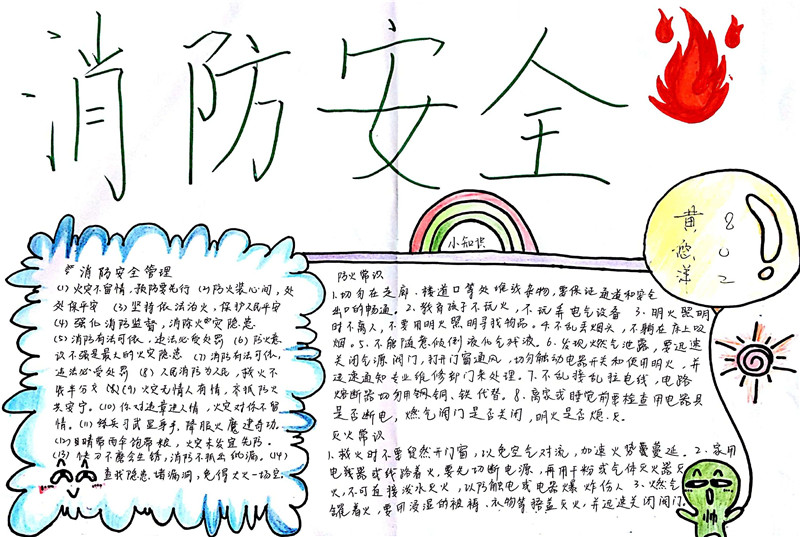 消防安全
小知识
黄悠洋
802
消防安全管理
(1)火灾不留情,预防要先行 (2)防火装心间,处
处保平安 (3)坚持依法治火,保护人民平安
(4)强化消防监督,消除火灾隐患
(5)消防有法可依,违法必受处罚 (6)防火意
识不强是最大的火灾隐患 (7)消防有法可依,
违法必受处罚 (8)人民消防为人民,救火不
失半分 (9)火灾无情人有情,齐抓防火
共安宁。(10)你对违章迷人情,火灾对你不留
情。(11)
降服火魔建奇功。
火灾未发宜先防。
(13)
消防不抓出纰漏。(14)
查找隐患堵漏洞,免得大火一场空
防火常识
1.切勿在走廊、楼道口等处堆放杂物,要保证通道和安全
出口的畅通。2.教育孩子不玩火,不玩弄电气设备 3.明火照明
时不离人,不要用明火照明寻找物品。4.不乱丢烟头,不躺在床上吸
烟。5.不能随意倾倒液化气残液。6.发现燃气泄露,要迅速
关闭气源阀门,打开门窗通风,切勿触动电器开关和使用明火,并
迅速通知专业维修部门来处理。7.不乱接乱拉电线,电路
熔断器切勿用钢铜、铁代替。8.离家或睡觉前要检查用电器具
是否断电,燃气阀门是否关闭,明火是否熄灭。
灭火常识
1.救火时不要贸然开门窗,以免空气对流,加速火势蔓延。2.家用
电线器或线路着火,要先切断电源,再用干粉或气体灭火器灭
火,不可直接泼水灭火,以防触电或电器爆炸伤人 3.燃气
罐着火,要用浸湿的被褥、衣物等捂盖灭火,并迅速关闭阀门。
帅